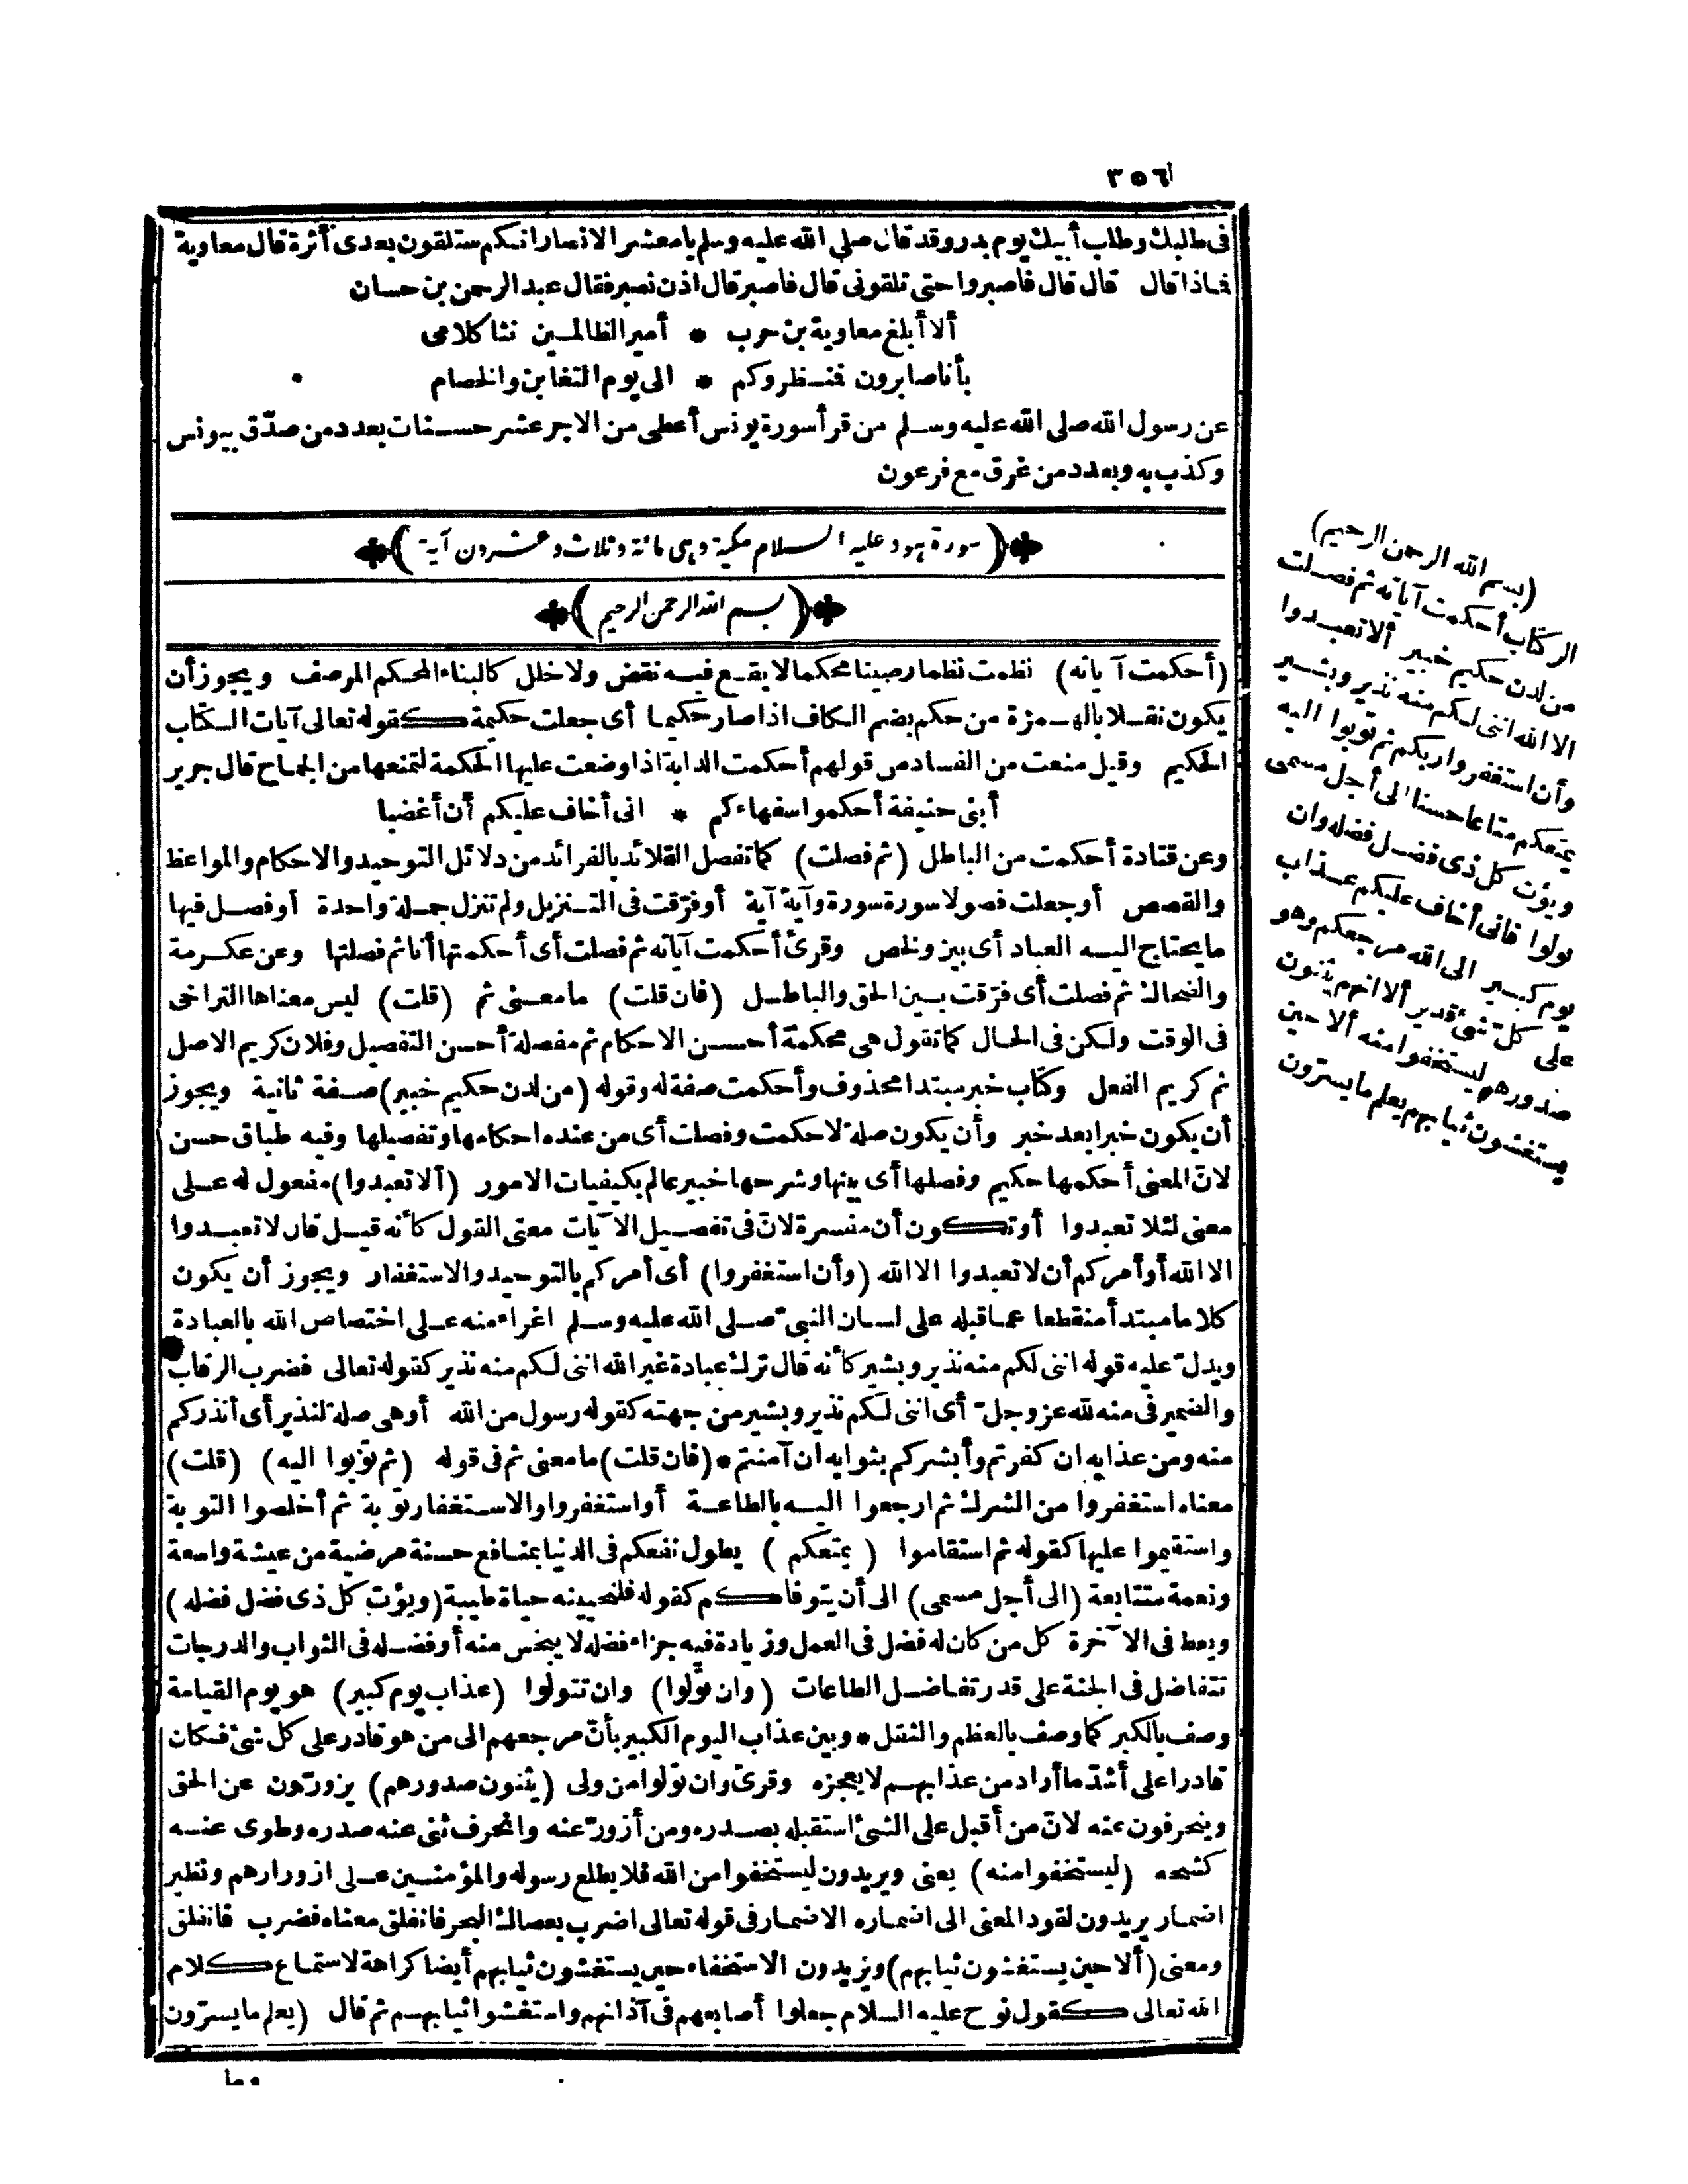 ٣٥٦
فى طلبك وطلب أبيك يوم بدر وقد قال صلى الله عليه وسلم يا معشر الانصار انكم ستلقون بعدى أثرة قال معاوية
فماذا قال قال قال فاصبروا حتى تلقونى قال فاصبر قال اذن نصبر فقال عبد الرحمن بن حسان
ألا أبلغ معاوية بن حرب * أمير الظالمين نثا كلامى
بأنا صابرون فنظروكم * الى يوم التغابن والخصام
عن رسول الله صلى الله عليه وسلم من قرأ سورة يونس أعطى من الاجر عشر حسنات بعدد من صدّق بيونس
وكذب به وبعدد من غرق مع فرعون
(سورة هود عليه السلام مكية وهى مائة وثلاث وعشرون آية)
(بسم الله الرحمن الرحيم)
(أحكمت آياته) نظمت نظما رصينا محكما لا يقع فيه نقض ولا خلل كالبناء المحكم المرصف ويجوز أن
يكون نقلا بالهمزة من حكم بضم الكاف اذا صار حكيما أى جعلت حكيمة كقوله تعالى آيات الكتاب
الحكيم وقيل منعت من الفساد من قولهم أحكمت الدابة اذا وضعت عليها الحكمة لتمنعها من الجماح قال جرير
أبنى حنيفة أحكموا سفهاءكم * انى أخاف عليكم أن أغضبا
وعن قتادة أحكمت من الباطل (ثم فصلت) كما تفصل القلائد بالفرائد من دلائل التوحيد والاحكام والمواعظ
والقصص أو جعلت فصولا سورة سورة وآية آية أو فرّقت فى التنزيل ولم تنزل جملة واحدة أو فصل فيها
ما يحتاج اليه العباد أى بين ولخص وقرئ أحكمت آياته ثم فصلت أى أحكمتها أنا ثم فصلتها وعن عكرمة
والضحاك ثم فصلت أى فرّقت بين الحق والباطل (فان قلت) ما معنى ثم (قلت) ليس معناها التراخى
فى الوقت ولكن فى الحال كما تقول هى محكمة أحسن الاحكام ثم مفصلة أحسن التفصيل وفلان كريم الاصل
ثم كريم الفعل وكتاب خبر مبتدا محذوف وأحكمت صفة له وقوله (من لدن حكيم خبير) صفة ثانية ويجوز
أن يكون خبرا بعد خبر وأن يكون صلة لاحكمت وفصلت أى من عنده احكامها وتفصيلها وفيه طباق حسن
لانّ المعنى أحكمها حكيم وفصلها أى بينها وشرحها خبير عالم بكيفيات الامور (ألا تعبدوا) مفعول له على
معنى لئلا تعبدوا أو تكون أن مفسرة لانّ فى تفصيل الآيات معنى القول كأنه قيل قال لا تعبدوا
الا الله أو أمركم أن لا تعبدوا الا الله (وأن استغفروا) أى أمركم بالتوحيد والاستغفار ويجوز أن يكون
كلاما مبتدأ منقطعا عما قبله على لسان النبىّ صلى الله عليه وسلم اغراء منه على اختصاص الله بالعبادة
ويدلّ عليه قوله اننى لكم منه نذير وبشير كأنه قال ترك عبادة غير الله اننى لكم منه نذير كقوله تعالى فضرب الرقاب
والضمير فى منه لله عز وجلّ أى اننى لكم نذير وبشير من جهته كقوله رسول من الله أو هى صلة لنذير أى أنذركم
منه ومن عذابه ان كفرتم وأبشركم بثوابه ان آمنتم * (فان قلت) ما معنى ثم فى قوله (ثم توبوا اليه) (قلت)
معناه استغفروا من الشرك ثم ارجعوا اليه بالطاعة أو استغفروا والاستغفار توبة ثم أخلصوا التوبة
واستقيموا عليها كقوله ثم استقاموا (يمتعكم) يطول نفعكم فى الدنيا بمنافع حسنة مرضية من عيشة واسعة
ونعمة متتابعة (الى أجل مسمى) الى أن يتوفاكم كقوله فلنحيينه حياة طيبة (ويؤت كل ذى فضل فضله)
ويعط فى الآخرة كل من كان له فضل فى العمل وزيادة فيه جزاء فضله لا يبخس منه أو فضله فى الثواب والدرجات
تتفاضل فى الجنة على قدر تفاضل الطاعات (وان تولوا) وان تتولوا (عذاب يوم كبير) هو يوم القيامة
وصف بالكبر كما وصف بالعظم والثقل * وبين عذاب اليوم الكبير بأنّ مرجعهم الى من هو قادر على كل شئ فكان
قادرا على أشدّ ما أراد من عذابهم لا يعجزه وقرئ وان تولوا من ولى (يثنون صدورهم) يزورّون عن الحق
وينحرفون عنه لانّ من أقبل على الشئ استقبله بصدره ومن أزورّ عنه وانحرف ثنى عنه صدره وطوى عنه
كشحه (ليستخفوا منه) يعنى ويريدون ليستخفوا من الله فلا يطلع رسوله والمؤمنين على ازورارهم ونظير
اضمار يريدون لقود المعنى الى اضماره الاضمار فى قوله تعالى اضرب بعصاك البحر فانفلق معناه فضرب فانفلق
ومعنى (ألا حين يستغشون ثيابهم) ويريدون الاستخفاء حين يستغشون ثيابهم أيضا كراهة لاستماع كلام
الله تعالى كقول نوح عليه السلام جعلوا أصابعهم فى آذانهم واستغشوا ثيابهم ثم قال (يعلم ما يسرّون
وما
(بسم الله الرحمن الرحيم)
الر كتاب أحكمت آياته ثم فصلت
من لدن حكيم خبير ألا تعبدوا
الا الله اننى لكم منه نذير وبشير
وأن استغفروا ربكم ثم توبوا اليه
يمتعكم متاعا حسنا الى أجل مسمى
ويؤت كل ذى فضل فضله وان
تولوا فانى أخاف عليكم عذاب
يوم كبير الى الله مرجعكم وهو
على كلّ شئ قدير ألا انهم يثنون
صدورهم ليستخفوا منه ألا حين
يستغشون ثيابهم يعلم ما يسرّون